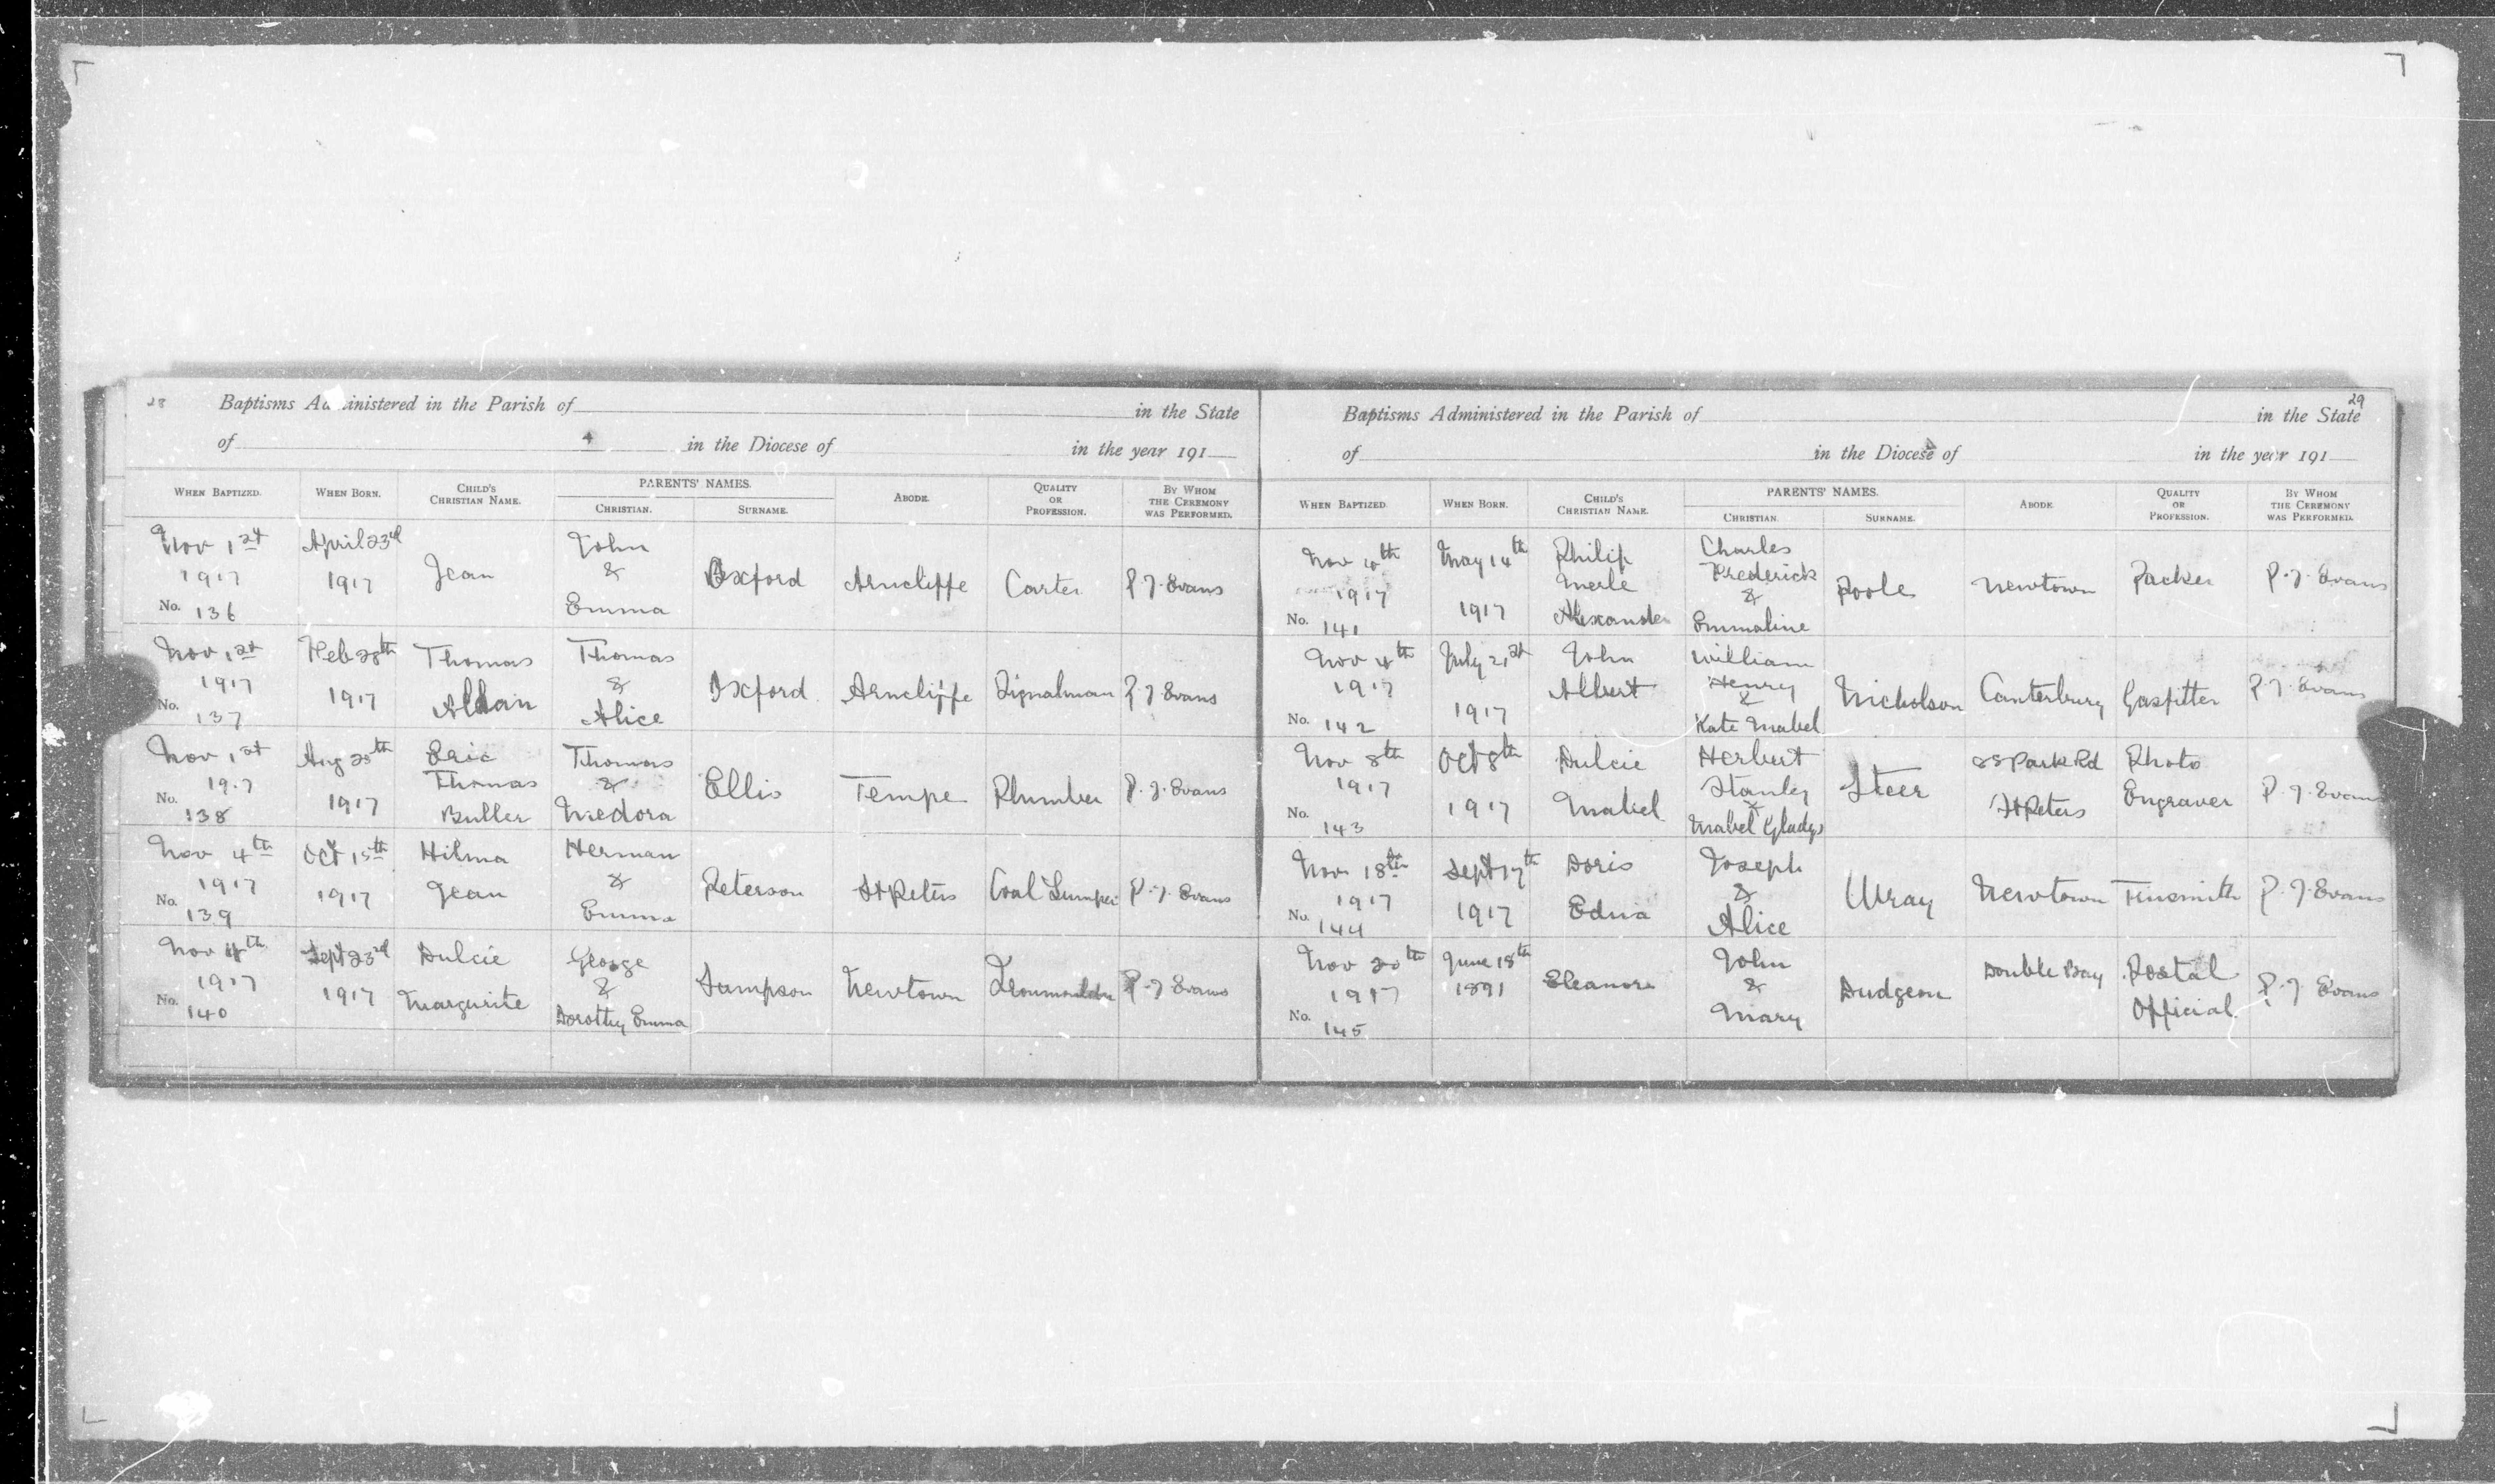 28
Baptisms Administered in the Parish of in the State
of in the Diocese of in the year 191
WHEN BAPTIZED. WHEN BORN. CHILD'S CHRISTIAN NAME. PARENTS' NAMES. CHRISTIAN. SURNAME. ABODE. QUALITY OR PROFESSION. BY WHOM THE CEREMONY WAS PERFORMED.
Nov 1st 1917 No. 136 April 23rd 1917 Jean John & Emma Oxford Arncliffe Carter P. J. Evans
Nov 1st 1917 No. 137 Feb 28th 1917 Thomas Allan Thomas & Alice Oxford Arncliffe Signalman P. J. Evans
Nov 1st 1917 No. 138 Aug 25th 1917 Eric Thomas Buller Thomas & Medora Ellis Tempe Plumber P. J. Evans
Nov 4th 1917 No. 139 Oct 15th 1917 Hilma Jean Herman & Emma Peterson St Peters Coal Lumper P. J. Evans
Nov 4th 1917 No. 140 Sept 23rd 1917 Dulcie Margurite George & Dorothy Emma Sampson Newtown Ironmoulder P. J. Evans
29
Baptisms Administered in the Parish of in the State
of in the Diocese of in the year 191
WHEN BAPTIZED WHEN BORN. CHILD'S CHRISTIAN NAME. PARENTS' NAMES. CHRISTIAN. SURNAME. ABODE QUALITY OR PROFESSION. BY WHOM THE CEREMONY WAS PERFORMED.
Nov 1917 No. 141 May 14th 1917 Philip Merle Alexander Charles Frederick & Emmaline Poole Newtown Packer P. J. Evans
Nov 4th 1917 No. 142 July 21st 1917 John Albert William Henry & Kate Mabel Nicholson Canterbury Gasfitter P. J. Evans
Nov 8th 1917 No. 143 Oct 8th 1917 Dulcie Mabel Herbert Stanley & Mabel Gladys Steer Park Rd St Peters Photo Engraver P. J. Evans
Nov 18th 1917 No. 144 Sept 17th 1917 Doris Edna Joseph & Alice Wray Newtown Tinsmith P. J. Evans
Nov 20th 1917 No. 145 June 18th 1891 Eleanore John & Mary Dudgeon Double Bay Postal Official P. J. Evans